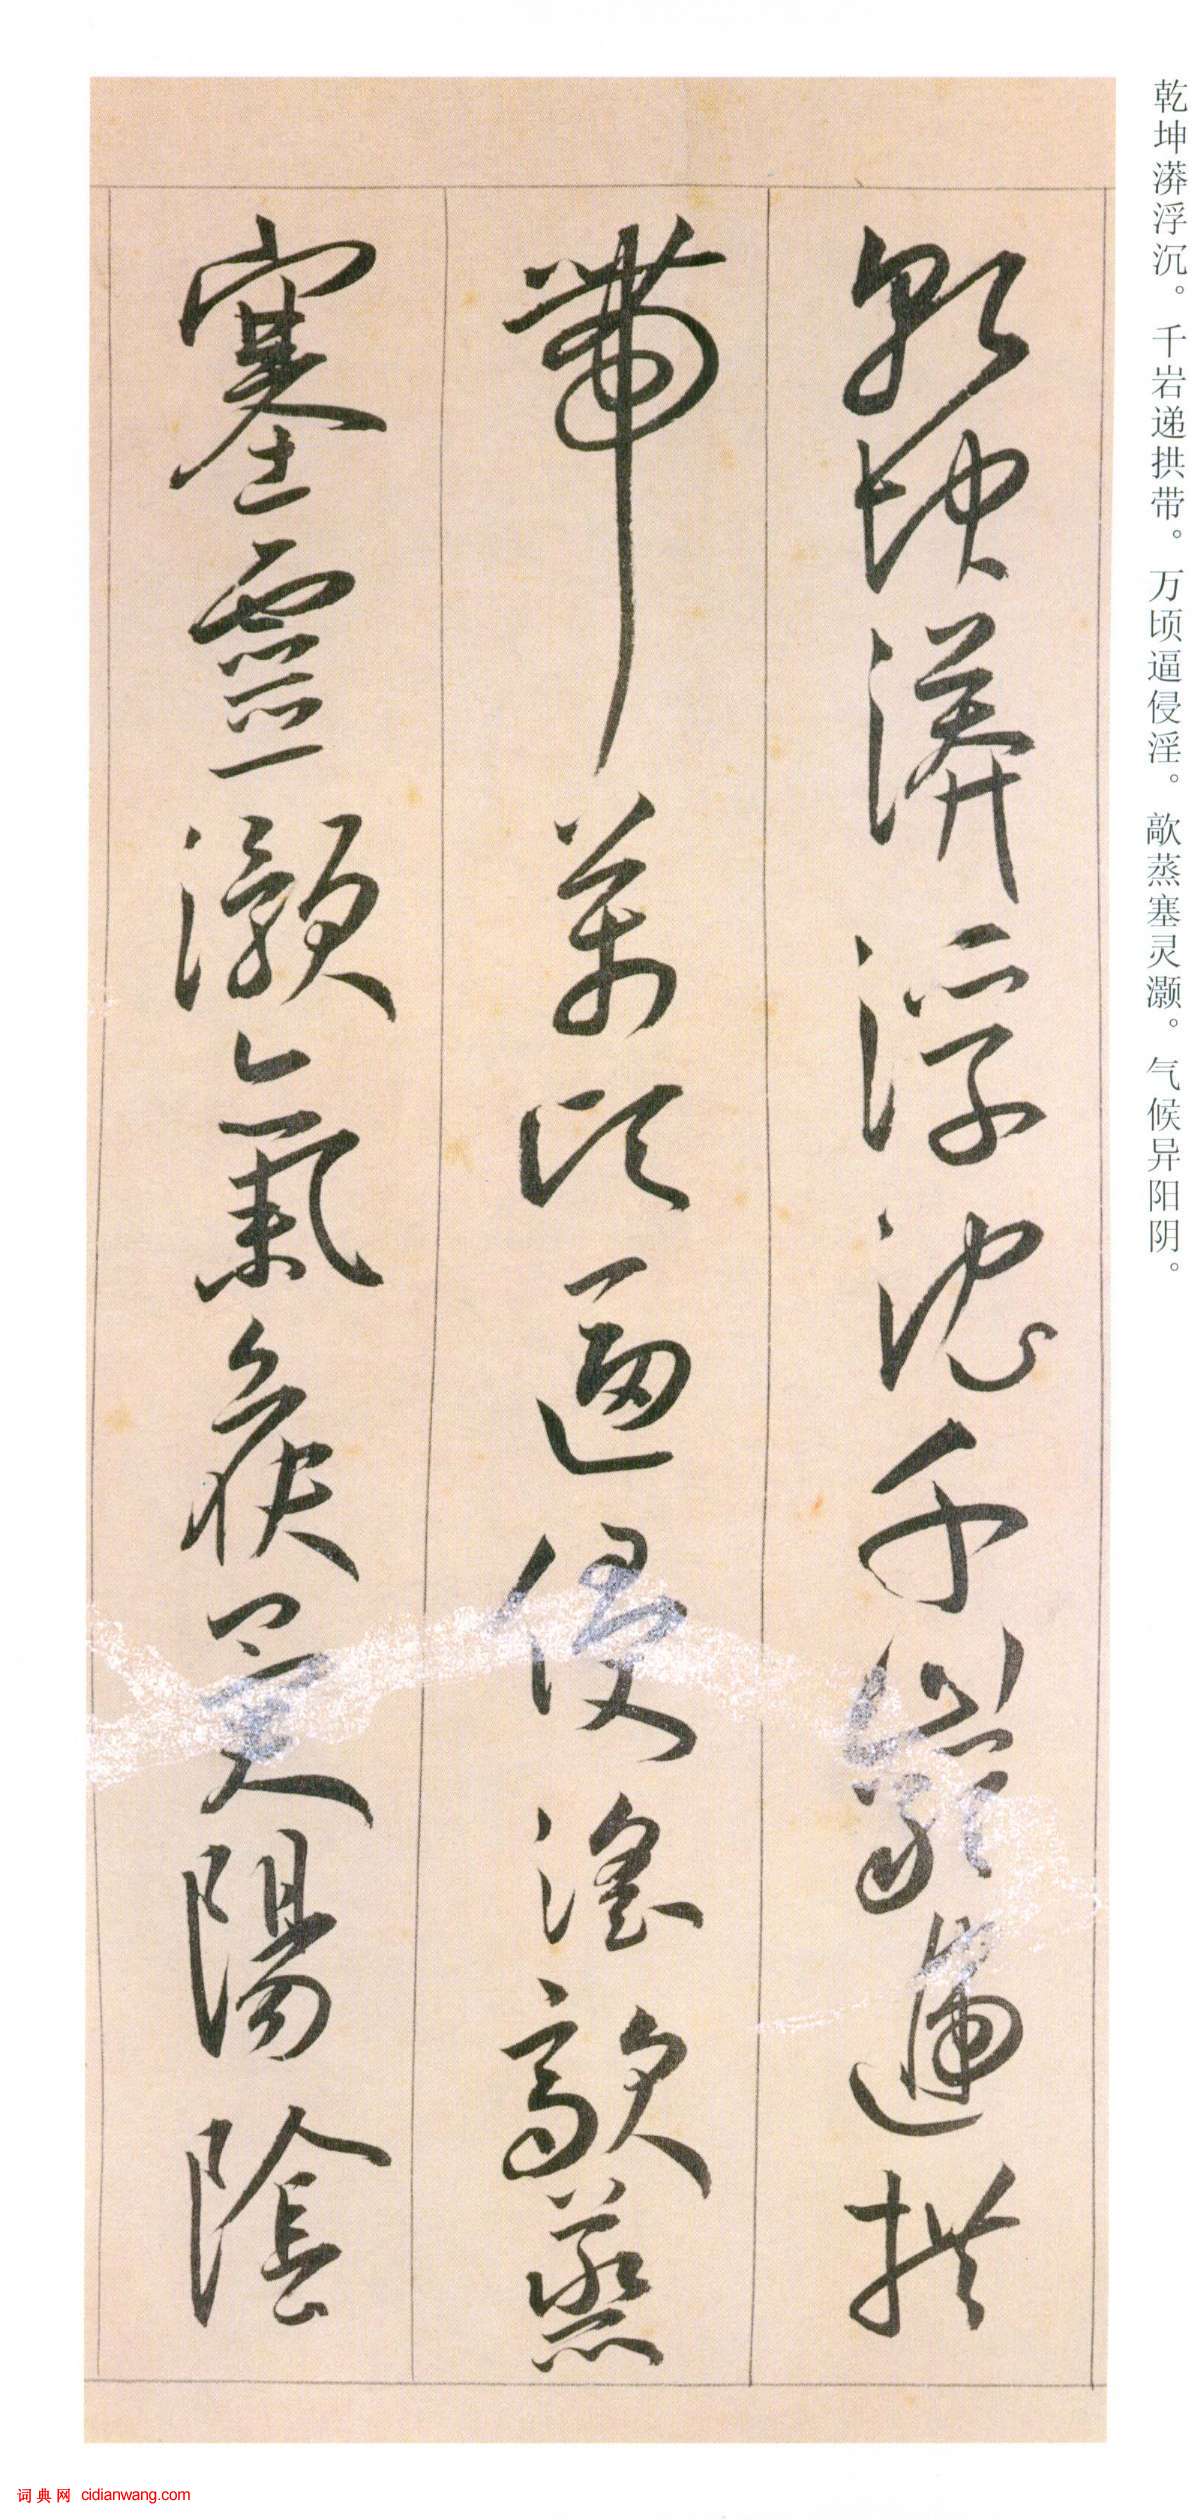 乾坤漭浮沉。千岩递拱带。万顷逼侵淫。歊蒸塞灵灏。气候异阳阴。
乾坤漭浮沈千巖遞拱
帶萬頃逼侵淫歊蒸
塞靈灝氣候異陽陰
词典网 cidianwang.com